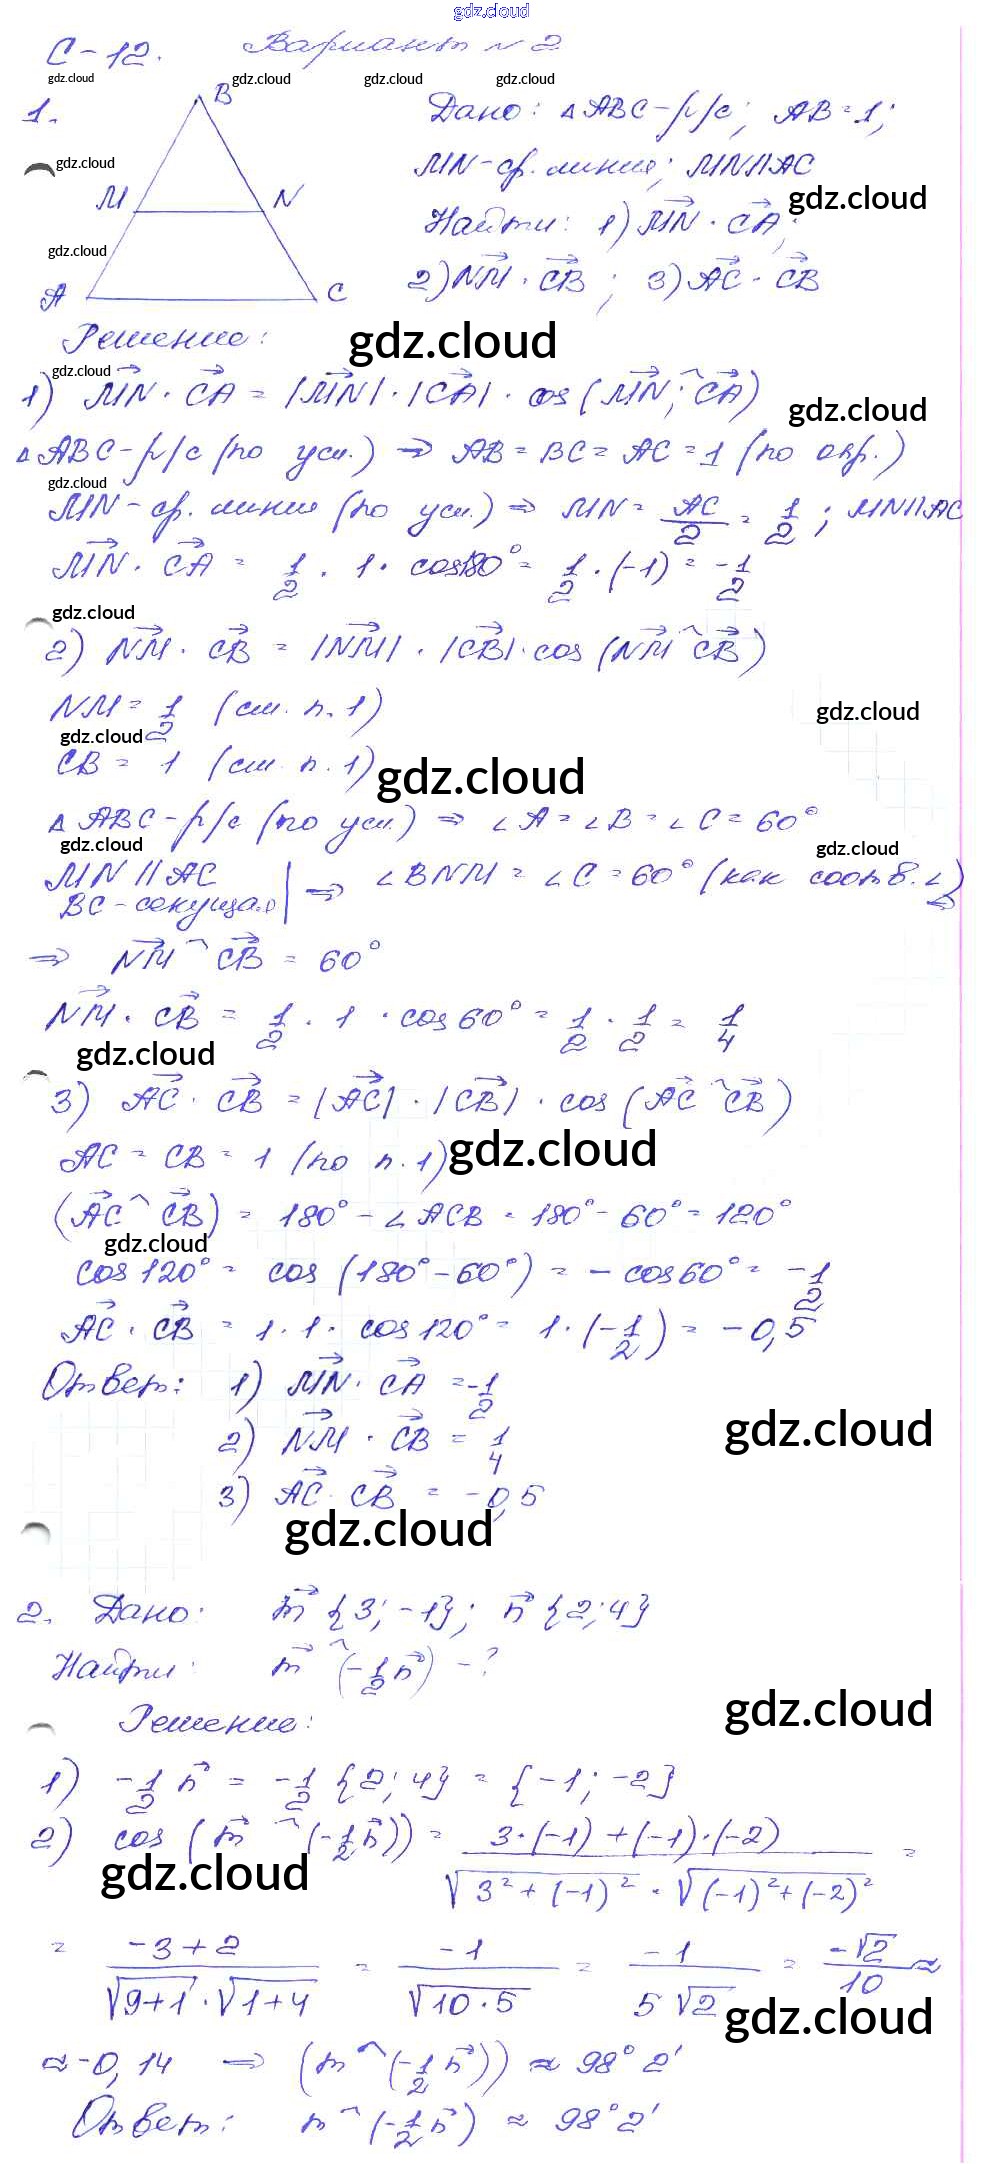 gdz.cloud
С-12. Вариант №2
gdz.cloud gdz.cloud gdz.cloud gdz.cloud
1. B Дано: △ABC-р/с; AB=1;
gdz.cloud
M N MN-ср. линия; MN||AC
gdz.cloud
Найти: 1) MN→ · CA→;
gdz.cloud
A C 2) NM→ · CB→; 3) AC→ · CB→
Решение:
gdz.cloud
gdz.cloud
1) MN→ · CA→ = |MN→| · |CA→| · cos(MN→;^CA→)
gdz.cloud
△ABC-р/с (по усл.) ⇒ AB=BC=AC=1 (по опр.)
gdz.cloud
MN-ср. линия (по усл.) ⇒ MN = AC/2 = 1/2; MN||AC
MN→ · CA→ = 1/2 · 1 · cos180° = 1/2 · (-1) = -1/2
gdz.cloud
2) NM→ · CB→ = |NM→| · |CB→| · cos(NM→^CB→)
NM = 1/2 (см. п. 1)
gdz.cloud
gdz.cloud
CB = 1 (см. п. 1)
gdz.cloud
△ABC-р/с (по усл.) ⇒ ∠A=∠B=∠C=60°
gdz.cloud
gdz.cloud
MN||AC
BC-секущая | ⇒ ∠BNM = ∠C = 60° (как соотв. ∠)
⇒ NM→^CB→ = 60°
NM→ · CB→ = 1/2 · 1 · cos60° = 1/2 · 1/2 = 1/4
gdz.cloud
3) AC→ · CB→ = |AC→| · |CB→| · cos(AC→^CB→)
AC = CB = 1 (по п. 1)
gdz.cloud
(AC→^CB→) = 180° - ∠ACB = 180° - 60° = 120°
gdz.cloud
cos120° = cos(180°-60°) = -cos60° = -1/2
AC→ · CB→ = 1 · 1 · cos120° = 1 · (-1/2) = -0,5
Ответ: 1) MN→ · CA→ = -1/2
gdz.cloud
2) NM→ · CB→ = 1/4
3) AC→ · CB→ = -0,5
gdz.cloud
2. Дано: m→{3;-1}; n→{2;4}
Найти: m→^(-1/2 n→) - ?
gdz.cloud
Решение:
1) -1/2 n→ = -1/2 {2;4} = {-1;-2}
2) cos(m→^(-1/2 n→)) = (3·(-1)+(-1)·(-2))/(√(3²+(-1)²) · √((-1)²+(-2)²)) =
gdz.cloud
= (-3+2)/(√(9+1) · √(1+4)) = -1/√(10·5) = -1/(5√2) = -√2/10 ≈
gdz.cloud
≈ -0,14 ⇒ (m→^(-1/2 n→)) ≈ 98°2'
Ответ: m^(-1/2 n→) ≈ 98°2'